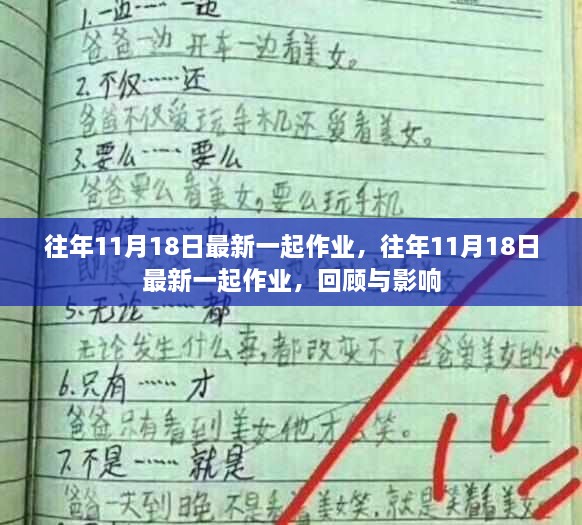 1.一边……一边
爸爸一边开车一边看美女。
2.不仅……还
爸爸不仅爱玩手机还爱看美女。
3.要么……要么
爸爸要么看美女。要么玩手机
往年11月18日最新一起作业，往年11月18日
最新一起作业，回顾与影响
5.无论……都
无论发生什么事，都改变不了爸爸爱美女的心
6.只有……才
爸爸只有看到美女他才会笑。
7.不是……就是
爸爸一天到晚不是看着美女笑，就是笑着看美女
100